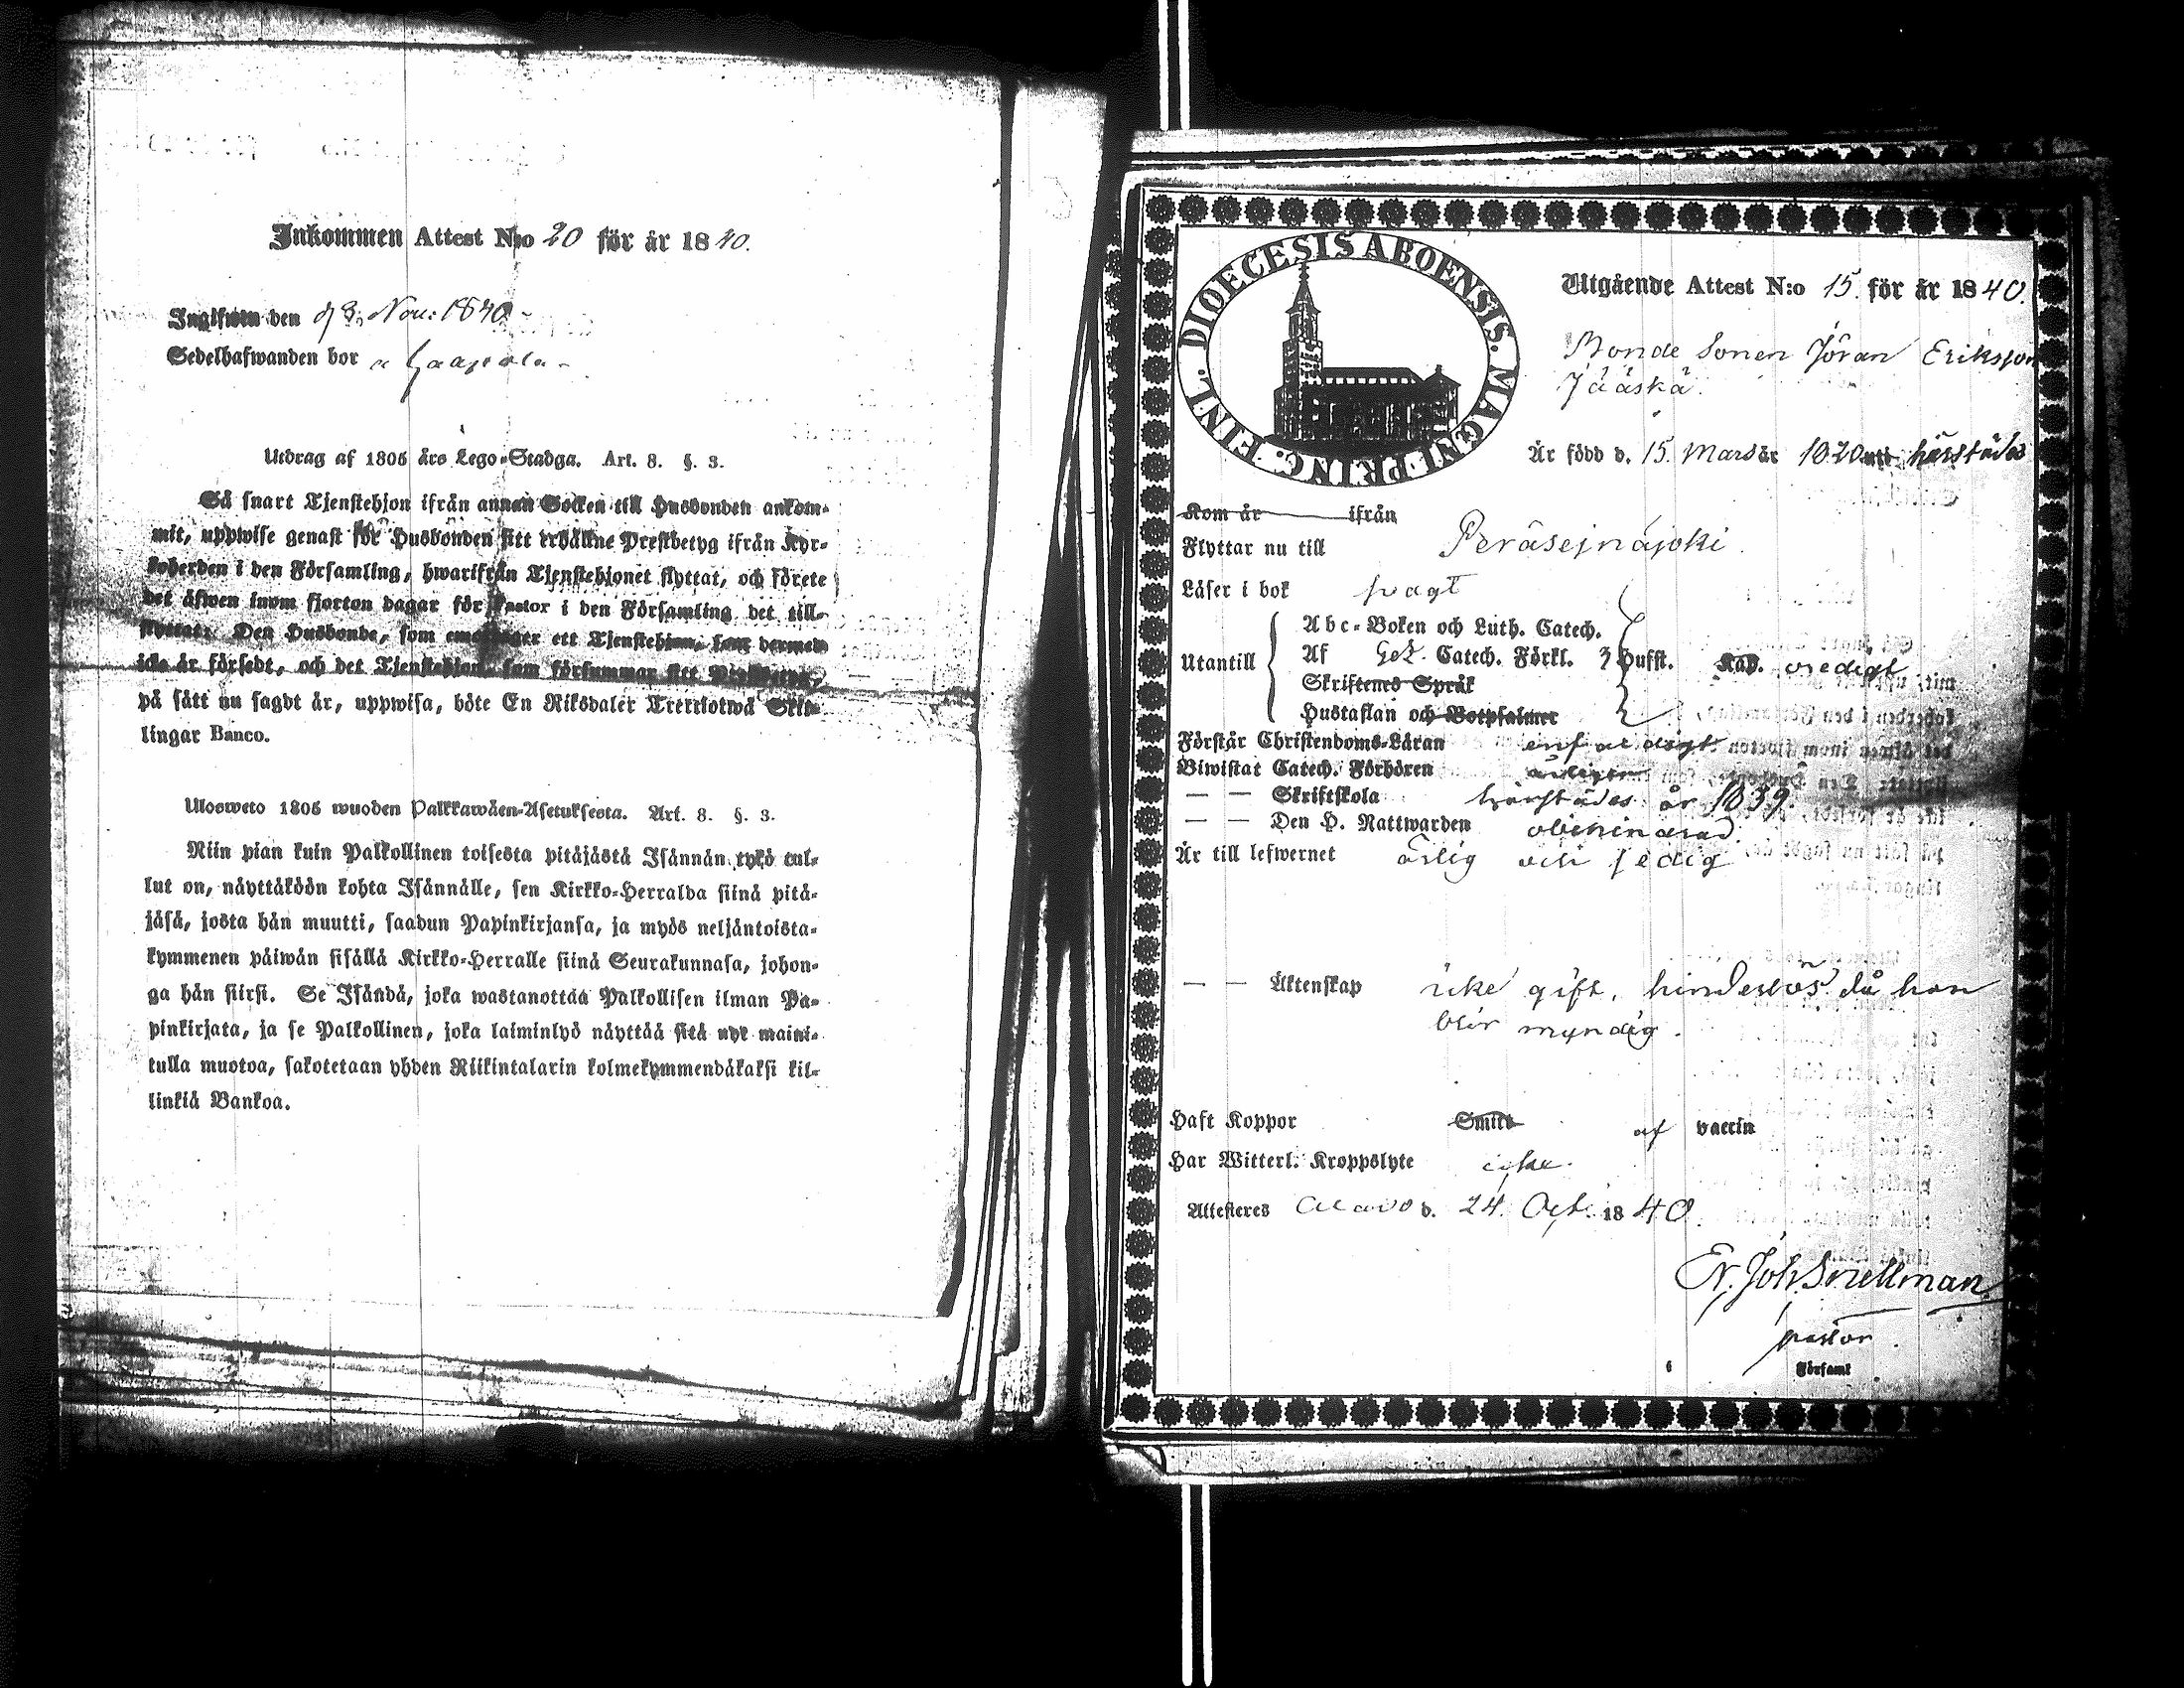 Inkommen Attest N:o 20 för år 1840.
Inglifwen den d 8. Nov: 1840
Sedelhafwanden bor
Utdrag af 1805 års Lego-Stadga. Art. 8. §. 3.
Så snart Tjenstehjon ifrån annan Socken till Husbonden ankom-
mit, uppwise genast för Husbonden sitt erhållne Prestbetyg ifrån Kyr-
koherden i den Församling, hwarifrån Tjenstehjonet flyttat, och förete
det äfwen inom fjorton dagar för Pastor i den Församling det till-
flyttat. Den Husbonde, som emottager ett Tjenstehjon, som dermed
icke är försedt, och det Tjenstehjon, som försummar sitt Prestbetyg,
på sätt nu sagdt är, uppwisa, böte En Riksdaler Trettiotwå Skil-
lingar Banco.
Uloswето 1805 wuoden Palkkawäen-Asetuksesta. Art. 8. §. 3.
Niin pian kuin Palkollinen toisesta pitäjästä Isännän tykö tul-
lut on, näyttäköön kohta Isännälle, sen Kirkko-Herralda siinä pitä-
jäsä, josta hän muutti, saadun Papinkirjansa, ja myös neljäntoista-
kymmenen päiwän sisällä Kirkko-Herralle siinä Seurakunnasa, johon-
ga hän siirsi. Se Isändä, joka wastanottaa Palkollisen ilman Pa-
pinkirjata, ja se Palkollinen, joka laiminlyö näyttää sitä nyt maini-
tulla muotoa, sakotetaan yhden Riikintalarin kolmekymmendäkaksi kil-
linkiä Bankoa.
DIOECESIS ABOENSIS. MAGNI PRINC. FINL.
Utgående Attest N:o 15. för år 1840.
Bonde Sonen Jöran Eriksson
Jääskä.
Är född d. 15. Mars år 1820 uti härstädes
Kom år ifrån
Flyttar nu till Peräsejnäjoki.
Läser i bok swagt
Utantill
Abc-Boken och Luth. Catech.
Af Gez. Catech. Förkl. 3 Hufst. Kap. oredigt
Skriftenes Språk
Hustaflan och Botpsalmer
Förstår Christendoms-Läran enfaldigt
Biwistat Catech. Förhören årligen
— — Skriftskola härstädes år 1839.
— — Den H. Nattwarden obehindrad
Är till lefwernet ärlig och sedig
— — Äktenskap icke gift, hinderslös då han
blir myndig.
Haft Koppor Smitt af vaccin
Har Witterl. Kroppslyte icke.
Attesteres Alavo d. 24. Oct. 1840.
Er. Joh. Snellman
pastor
Församl